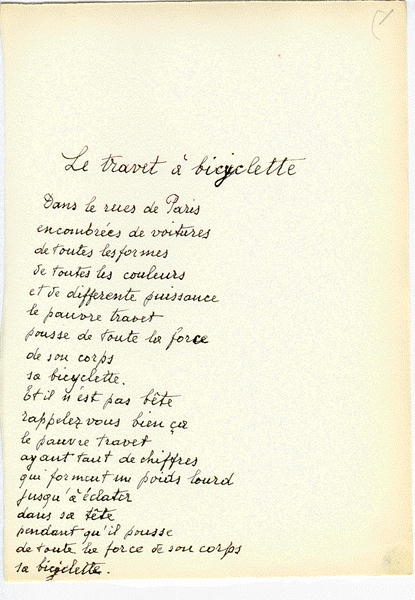 Le travet à bicyclette
Dans le rues de Paris
encombrées de voitures
de toutes les formes
de toutes les couleurs
et de differente puissance
le pauvre travet
pousse de toute la force
de son corps
sa bicyclette.
Et il n'est pas bête
rappelez vous bien ça
le pauvre travet
ayant tant de chiffres
qui forment un poids lourd
jusqu'à éclater
dans sa tête
pendant qu'il pousse
de toute la force de son corps
sa bicyclette.